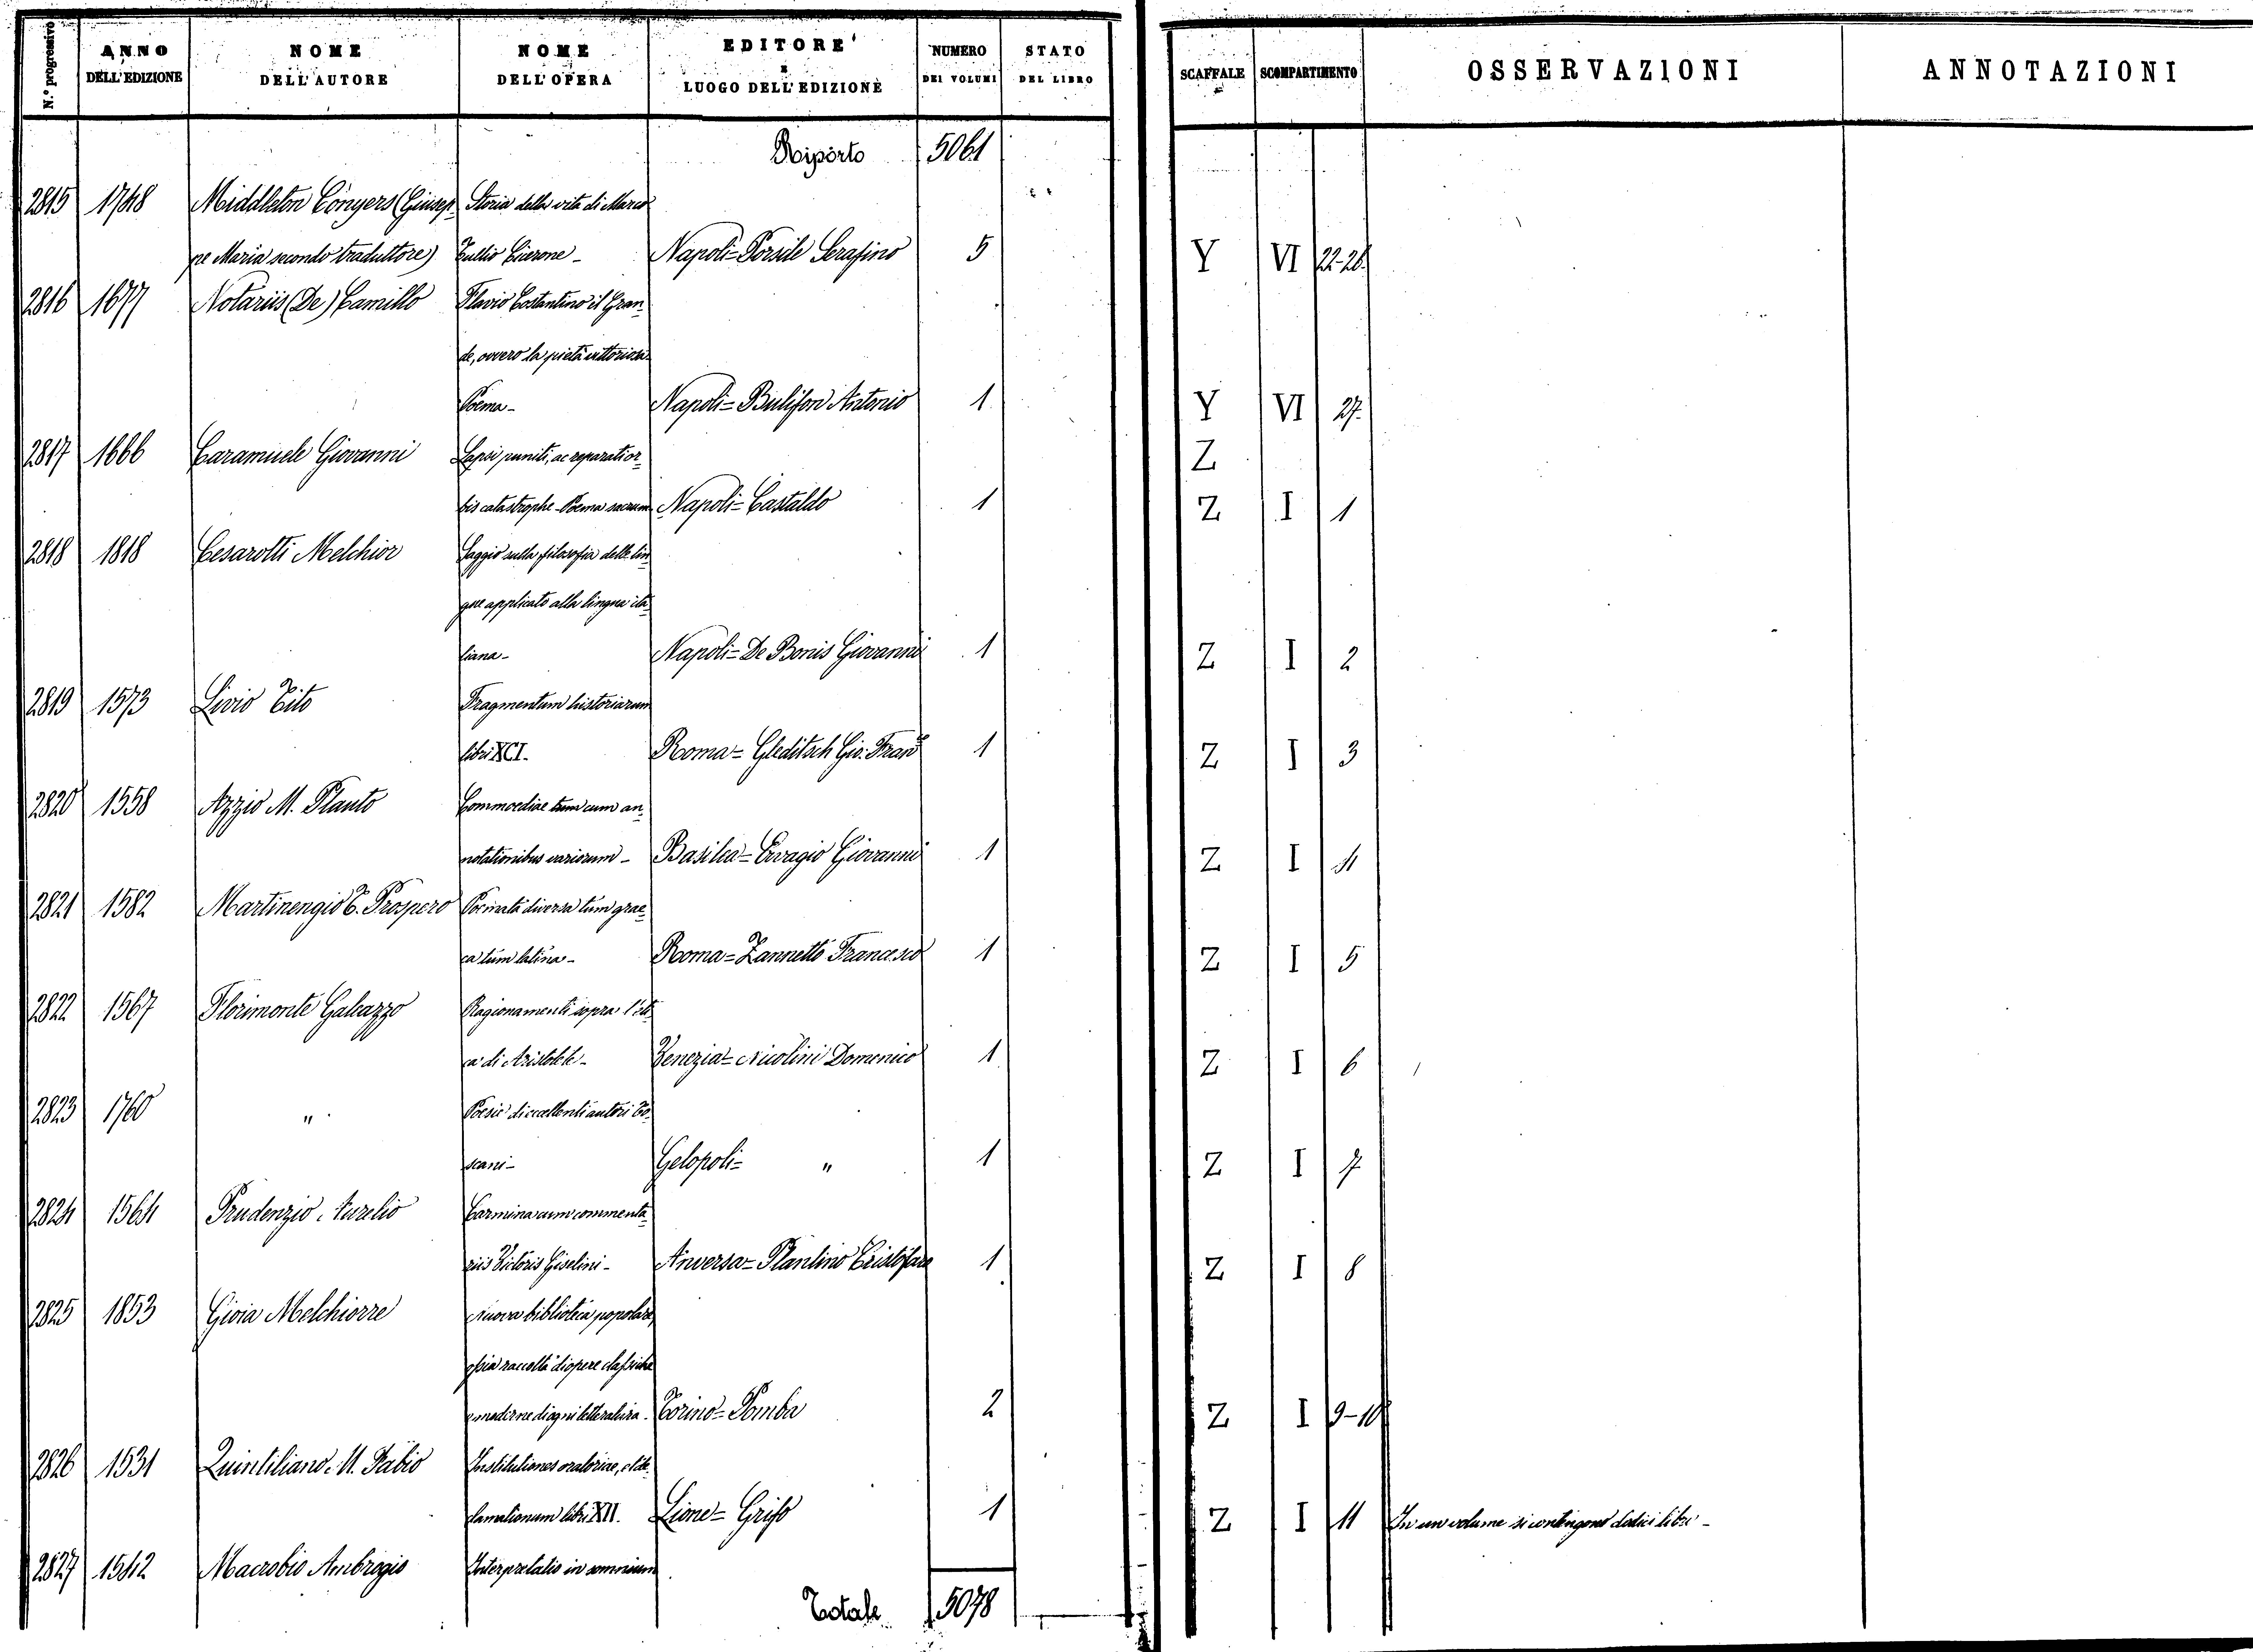 N.° progressivo ANNO DELL'EDIZIONE NOME DELL'AUTORE NOME DELL'OPERA EDITORE E LUOGO DELL'EDIZIONE NUMERO DEI VOLUMI STATO DEL LIBRO SCAFFALE SCOMPARTIMENTO OSSERVAZIONI ANNOTAZIONI
Riporto 5061
2815 1748 Middleton Conyers (Giusep- Storia della vita di Marco
pe Maria secondo traduttore) Tullio Cicerone - Napoli = Porsile Serafino 5 Y VI 22-26.
2816 1677 Notariis (De) Camillo Flavio Costantino il Gran-
de, ovvero la pietà vittoriosa
Poema - Napoli = Bulifon Antonio 1 Y VI 27.
2817 1666 Caramuele Giovanni Lapsi puniti, ac reparati or- Z
bis catastrophe - Poema sacrum Napoli = Castaldo 1 Z I 1
2818 1818 Cesarotti Melchior Saggio sulla filosofia delle lin-
gue applicato alla lingua ita-
liana - Napoli = De Bonis Giovanni 1 Z I 2
2819 1573 Livio Tito Fragmentum historiarum
libri XCI. Roma = Gleditsch Gio: Fran 1 Z I 3
2820 1558 Azzio M. Plauto Commoediae cum an-
notationibus variorum - Basilea = Ervagio Giovanni 1 Z I 4
2821 1582 Martinengio C. Prospero Poemata diversa tum grae-
ca tum latina - Roma = Zannetto Francesco 1 Z I 5
2822 1567 Florimonte Galeazzo Ragionamenti sopra l'eti-
ca di Aristotele - Venezia = Nicolini Domenico 1 Z I 6
2823 1760 " Poesie di eccellenti autori To-
scani - Gelopoli = " 1 Z I 7
2824 1564 Prudenzio Aurelio Carmina cum commenta-
riis Victoris Giselini - Anversa = Plantino Cristofaro 1 Z I 8
2825 1853 Gioia Melchiorre Nuova biblioteca popolare,
ossia raccolta di opere classiche
e moderne di ogni letteratura. Torino = Pomba 2 Z I 9-10
2826 1531 Quintiliano M. Fabio Institutiones oratoriae, et de-
clamationum libri XII. Lione = Grifo 1 Z I 11 In un volume si contengono dodici libri -
2827 1542 Macrobio Ambrogio Interpretatio in somnium
Totale 5078